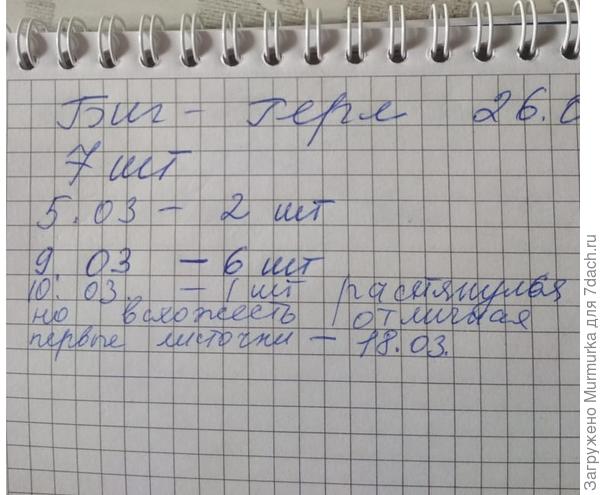 Биг - Герл 26.0
7 шт
5.03 - 2 шт
9.03 - 6 шт
10.03. - 1 шт растянулся
но всхожесть отличная
первые листочки - 18.03.
Загружено Murmurka для 7dach.ru